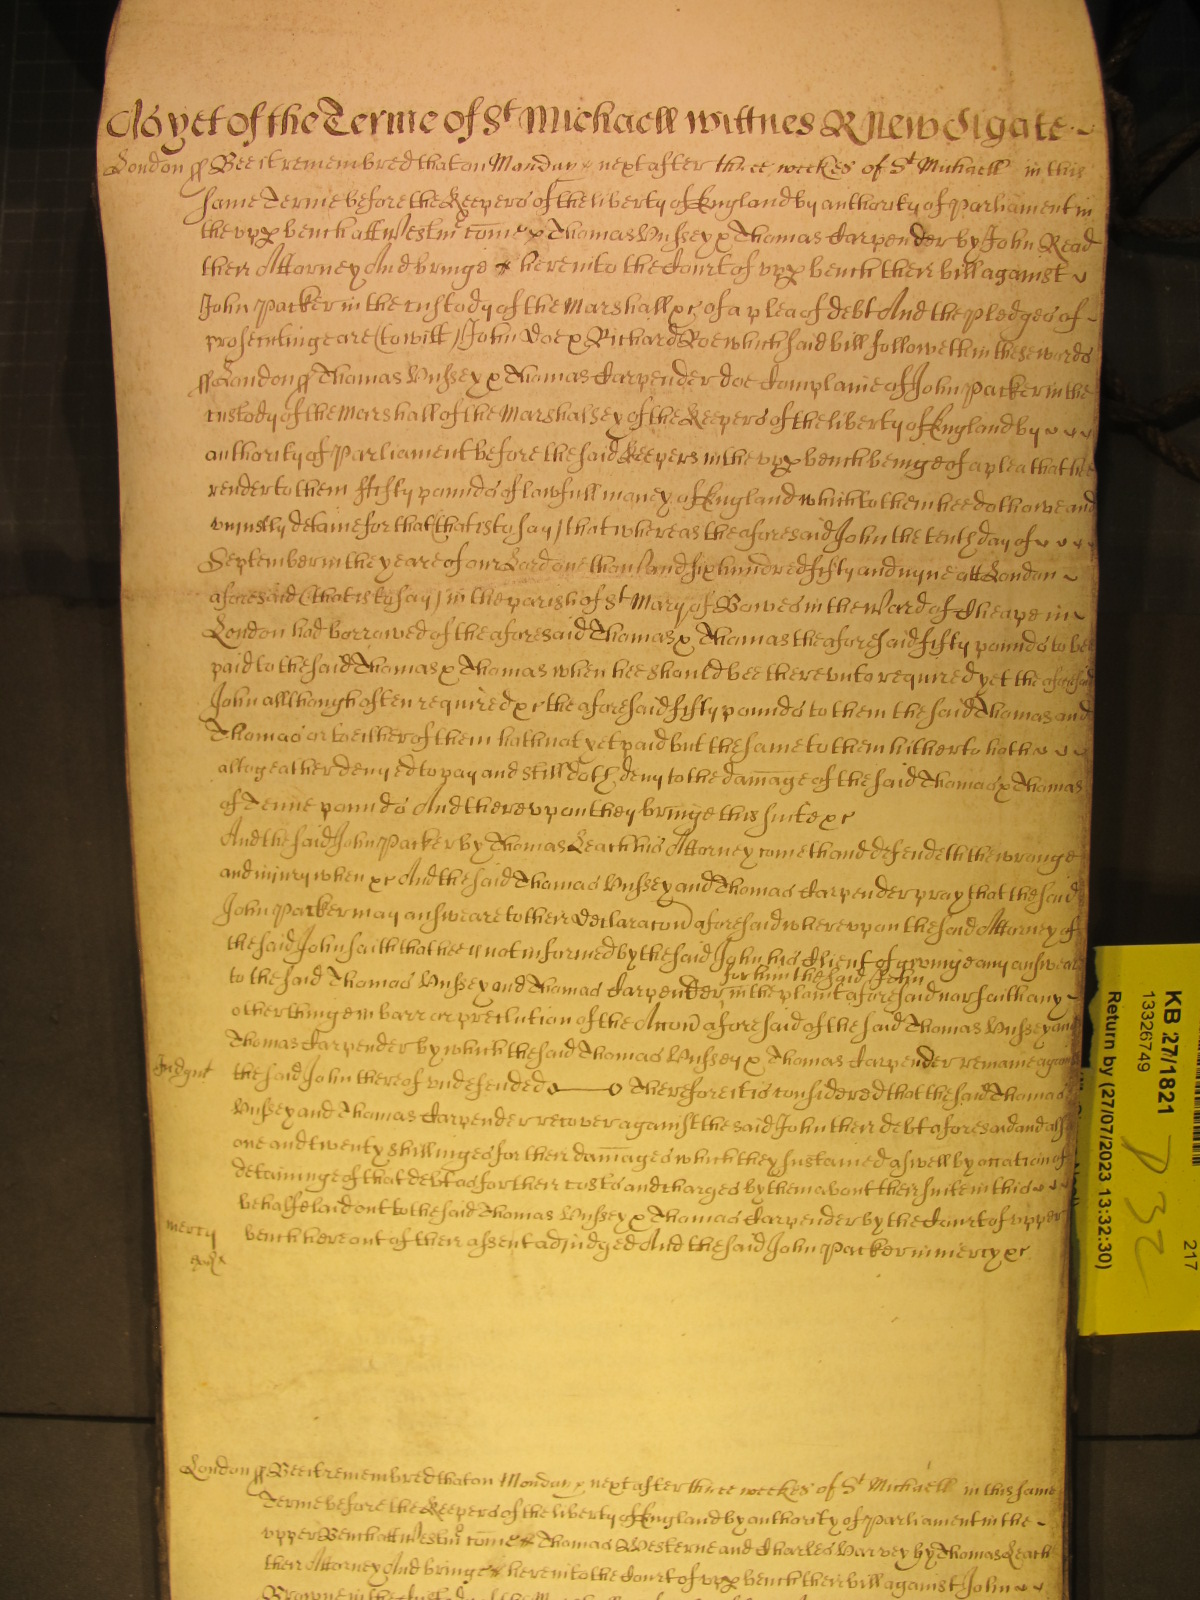 As yet of the Terme of St Michaell wittnes R Newdigate
London ss Bee it remembred that on Monday next after three weekes of St Michaell in this
same Terme before the Keepers of the liberty of England by authority of Parliament in
the upp bench att Westm come Thomas Vussey & Thomas Carpender by John Read
their Attorney And bringe here into the Court of upp bench their bill against
John Packer in the custody of the Marshall &c of a plea of debt And the pledges of
prosecutinge are (to witt) John Doe & Richard Roe which said bill followeth in these words
ss London ss Thomas Vussey & Thomas Carpender doe Complaine of John Packer in the
custody of the Marshall of the Marshalsey of the Keepers of the liberty of England by
authority of Parliament before the said Keepers in the upp bench beinge of a plea that hee
render to them ffifty pounds of lawfull money of England which to them hee doth owe and
uniustly detaine for that (that is to say) that whereas the aforesaid John the tenth day of
September in the yeare of our Lord one thousand six hundred fifty and nyne att London
aforesaid (that is to say) in the parish of St Mary of Bowes in the Ward of Cheape in
London had borrowed of the aforesaid Thomas & Thomas the aforesaid fifty pounds to bee
paid to the said Thomas & Thomas when hee should bee thereunto required yet the aforesaid
John allthough often required &c the aforesaid fifty pounds to them the said Thomas and
Thomas or to either of them hath not yet paid but the same to them hitherto hath
altogeather denyed to pay and still doth deny to the damage of the said Thomas & Thomas
of Tenne pounds And thereupon they bringe this suite &c
And the said John Packer by Thomas Leach his Attorney cometh and defendeth the wronge
and iniury when &c And the said Thomas Vussey and Thomas Carpender pray that the said
John Packer may answeare to their Declaracon aforesaid whereupon the said Attorney of
the said John saith that hee is not informed by the said John his Client of givinge any answeare
for him the said John
to the said Thomas Vussey and Thomas Carpender in the plaint aforesaid nor saith any
other thinge in barr or preclution of the Accon aforesaid of the said Thomas Vussey and
Thomas Carpender by which the said Thomas Vussey & Thomas Carpender remaine against
Judgmt
the said John thereof undefended Therefore it is considered that the said Thomas
Vussey and Thomas Carpender recover against the said John their debt aforesaid and also
one and twenty shillinges for their damages which they sustained aswell by occation of
detaininge of that debt as for their costs and charges by them about their suite in this
behalfe laid out to the said Thomas Vussey & Thomas Carpender by the Court of upper
mercy
bench here out of their assent adjudged And the said John Packer in mercy &c
London ss Bee it remembred that on Monday next after three weekes of St Michaell in this same
Terme before the Keepers of the liberty of England by authority of Parliament in the
upper Bench att Westm come Thomas Westerne and Charles Harvey by Thomas Leach
their Attorney And bringe here into the Court of upp bench their bill against John
Browne in the Custody of the Marshall
KB 27/1821
13326749
217
Return by (27/07/2023 13:32:30)